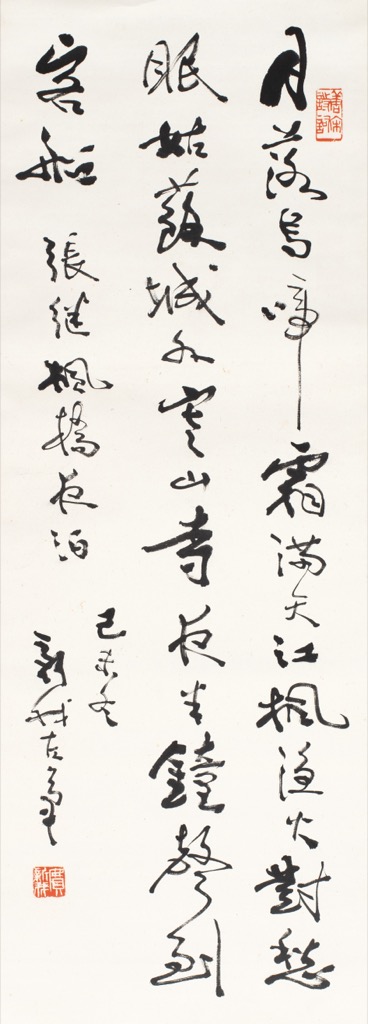 月落烏啼霜滿天江楓漁火對愁
眠姑蘇城外寒山寺夜半鐘聲到
客船 張继楓橋夜泊
己未冬
新我左筆
費新我